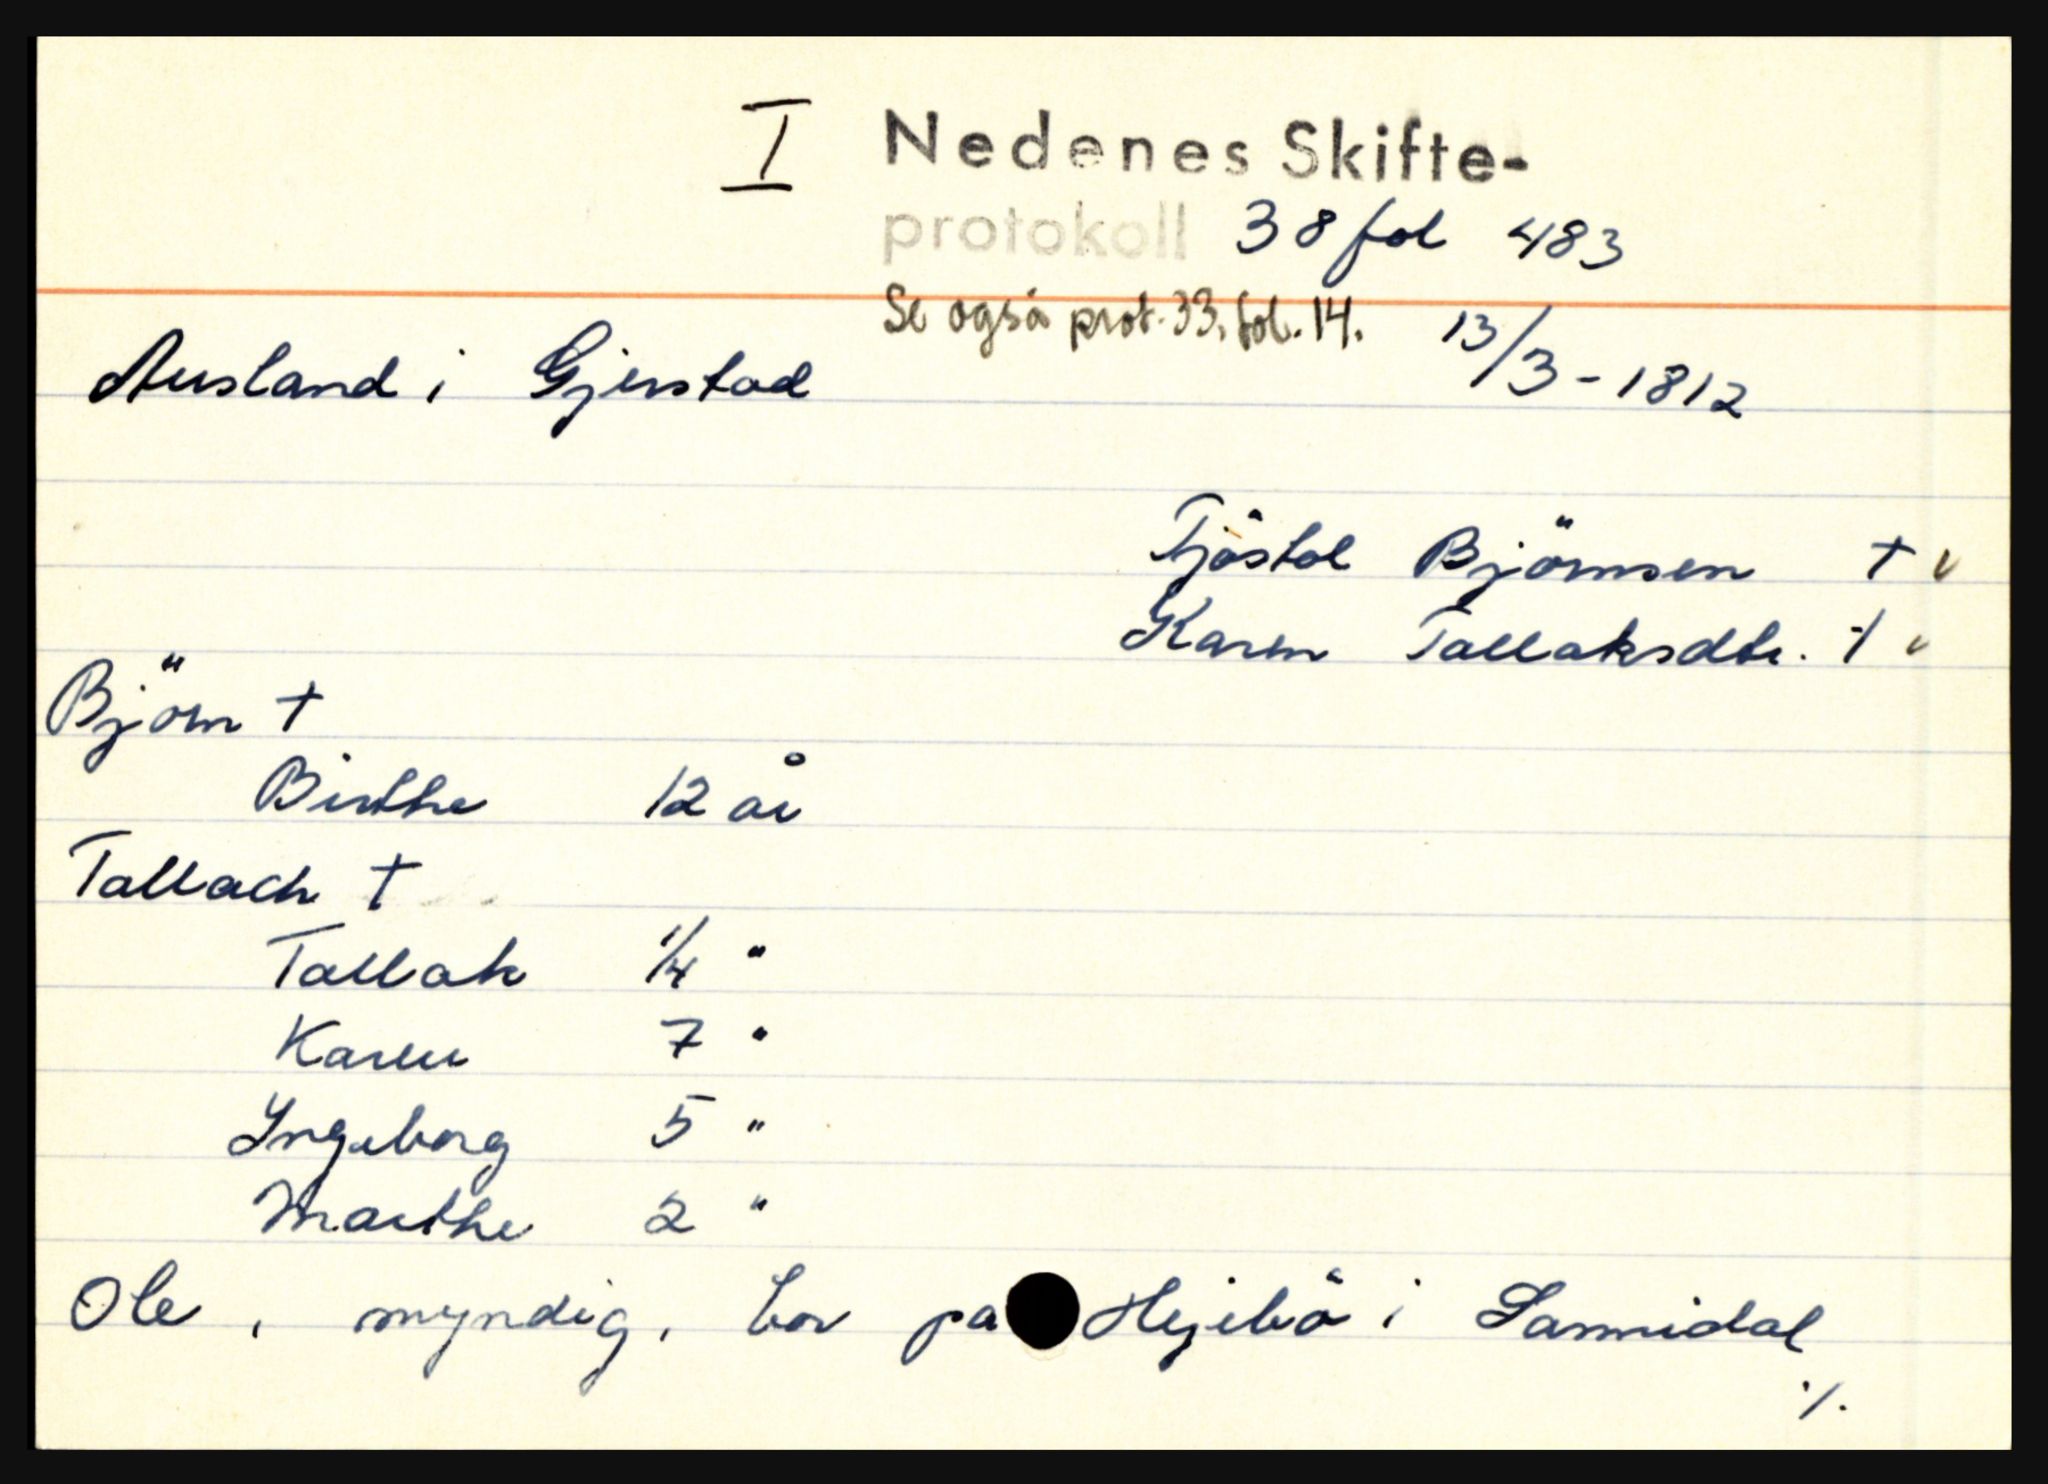 I Nedenes Skifte-
protokoll 38 fol 483
Se også prot. 33. fol. 14. 13/3-1812
Ausland i Gjerstad
Tjöstol Björnsen † v
Karen Tallaksdtr. † v
Björn †
Birthe 12 år
Tallach †
Tallak 1/4 "
Karen 7 "
Yngeborg 5 "
Marthe 2 "
Ole, myndig, bor på i Sannidal
./.